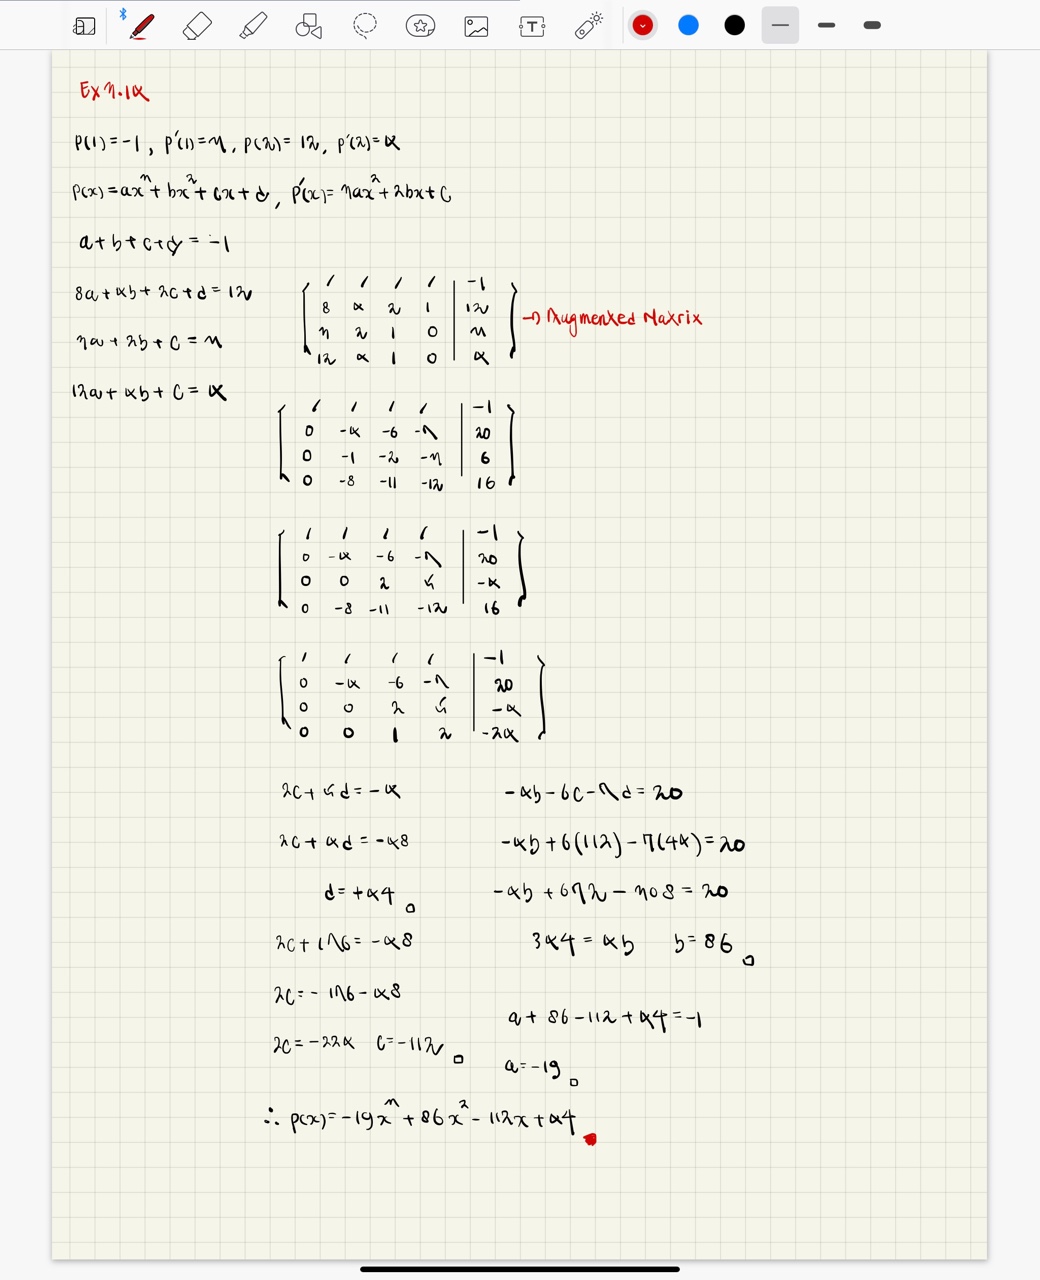 Ex 3.14
P(1)=-1, P'(1)=3, P(2)=12, P'(2)=4
P(x)=ax³+bx²+cx+d, P'(x)=3ax²+2bx+c
a+b+c+d=-1
8a+4b+2c+d=12
3a+2b+c=3
12a+4b+c=4
1 1 1 1 | -1
8 4 2 1 | 12
3 2 1 0 | 3
12 4 1 0 | 4
→ Augmented Matrix
1 1 1 1 | -1
0 -4 -6 -7 | 20
0 -1 -2 -3 | 6
0 -8 -11 -12 | 16
1 1 1 1 | -1
0 -4 -6 -7 | 20
0 0 2 5 | -4
0 -8 -11 -12 | 16
1 1 1 1 | -1
0 -4 -6 -7 | 20
0 0 2 5 | -4
0 0 1 2 | -24
2c+5d=-4
2c+4d=-48
d=+44
2c+176=-48
2c=-176-48
2c=-224 c=-112
-4b-6c-7d=20
-4b+6(112)-7(44)=20
-4b+672-308=20
344=4b b=86
a+86-112+44=-1
a=-19
∴ P(x)=-19x³+86x²-112x+44